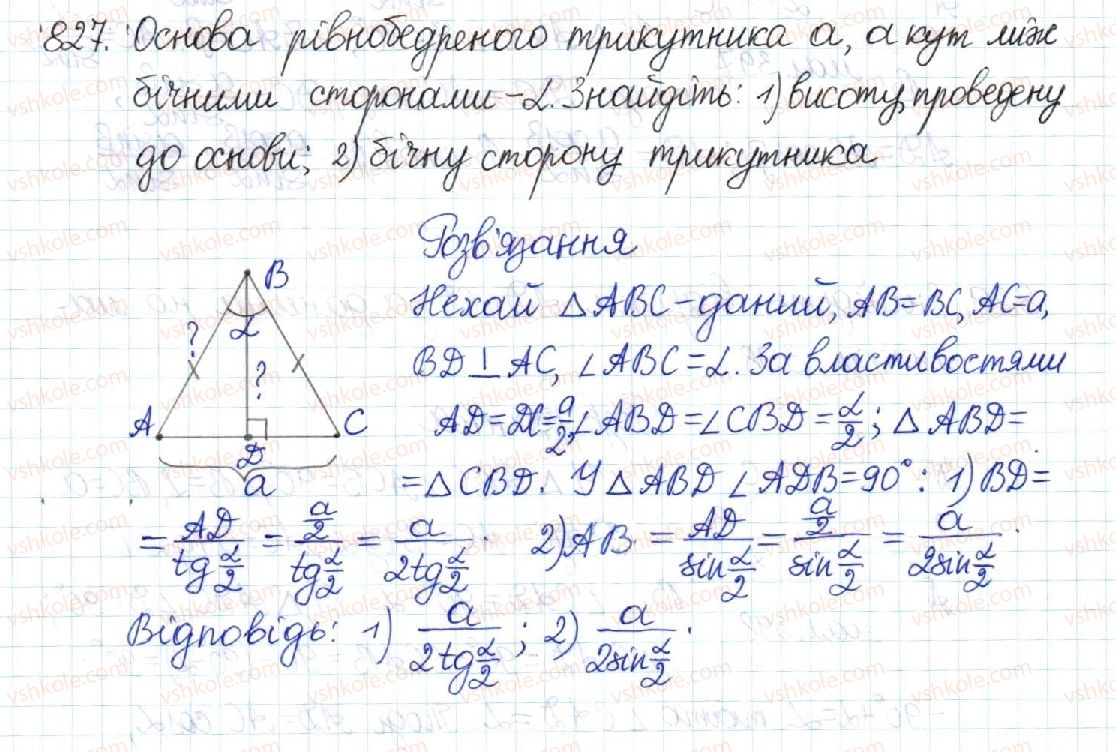 827. Основа рівнобедреного трикутника a, а кут між
бічними сторонами - α. Знайдіть: 1) висоту, проведену
до основи; 2) бічну сторону трикутника
Розв'язання
Нехай △ ABC - даний, AB = BC, AC = a,
BD ⊥ AC, ∠ ABC = α. За властивостями
AD = DC = a/2, ∠ ABD = ∠ CBD = α/2; △ ABD =
= △ CBD. У △ ABD ∠ ADB = 90°: 1) BD =
= AD / tg α/2 = a/2 / tg α/2 = a / 2tg α/2. 2) AB = AD / sin α/2 = a/2 / sin α/2 = a / 2sin α/2.
Відповідь: 1) a / 2tg α/2; 2) a / 2sin α/2.
B
α
?
?
A
D
C
a
vshkole.com